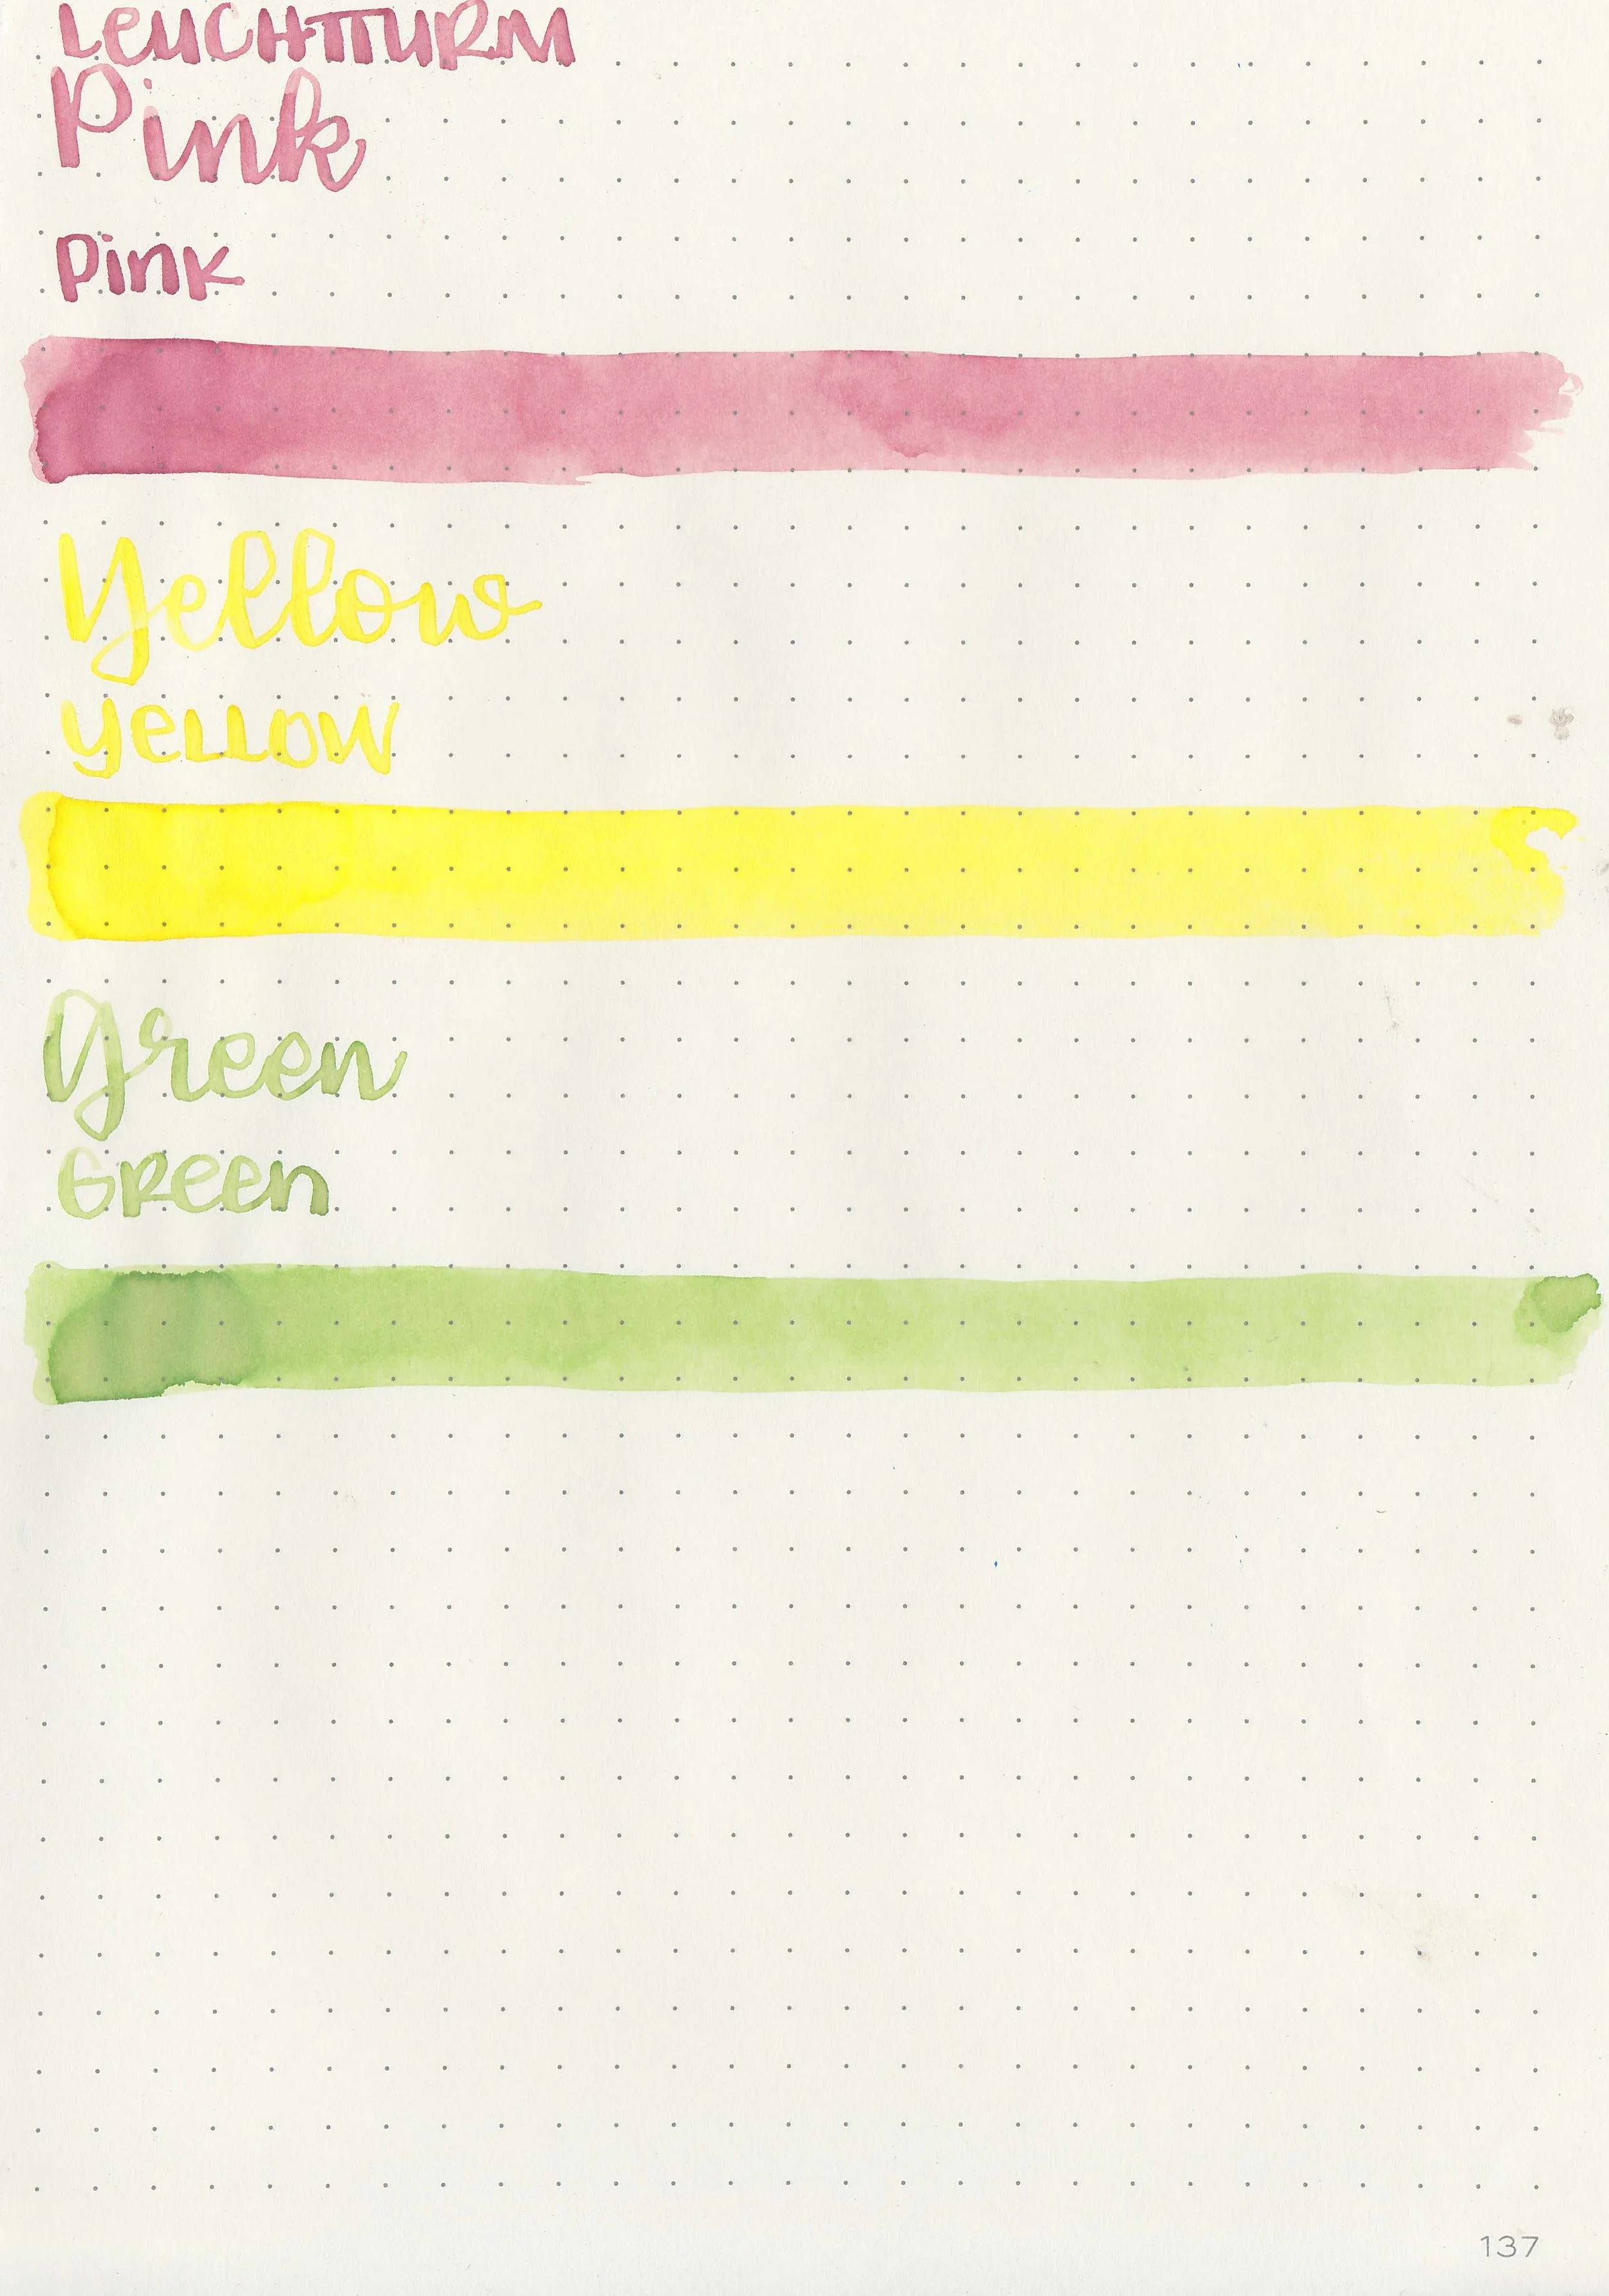 LEUCHTTURM
Pink
Pink
Yellow
Yellow
Green
GReen
137